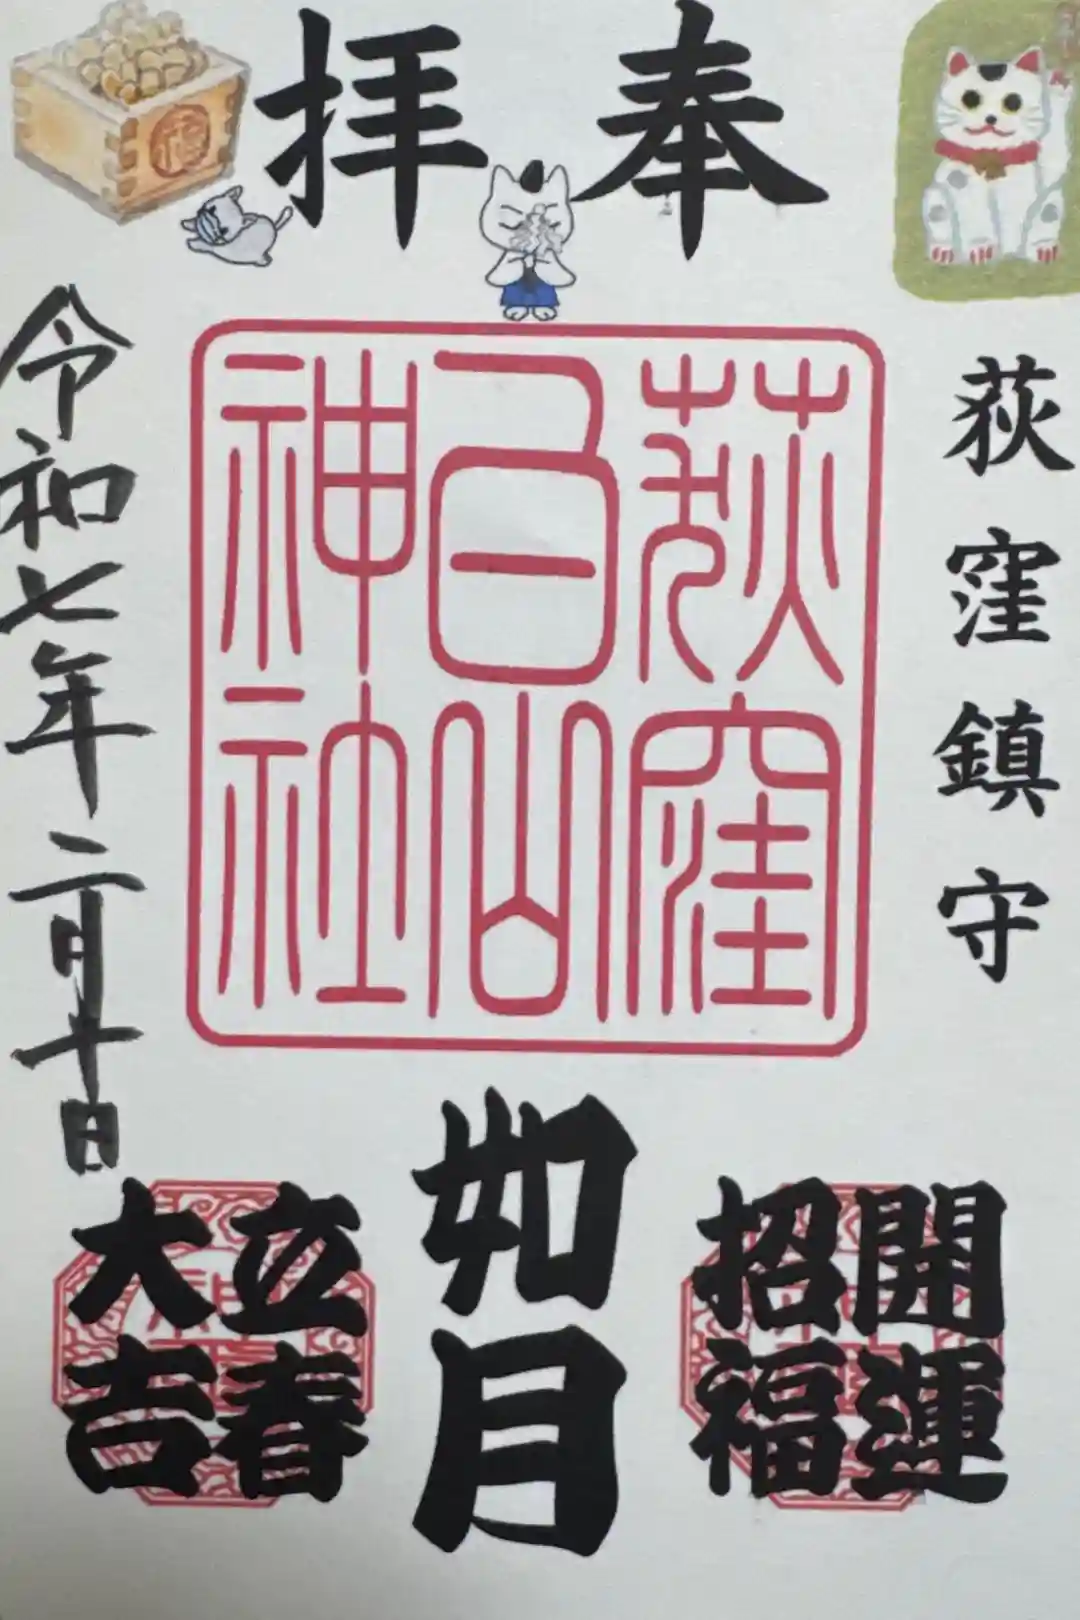 奉拝
荻窪鎮守
荻窪
白山
神社
開運
招福
如月
立春
大吉
令和七年二月十日
福